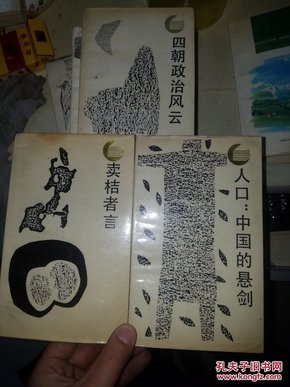 四朝政治风云
卖桔者言
人口：中国的悬剑
孔夫子旧书网